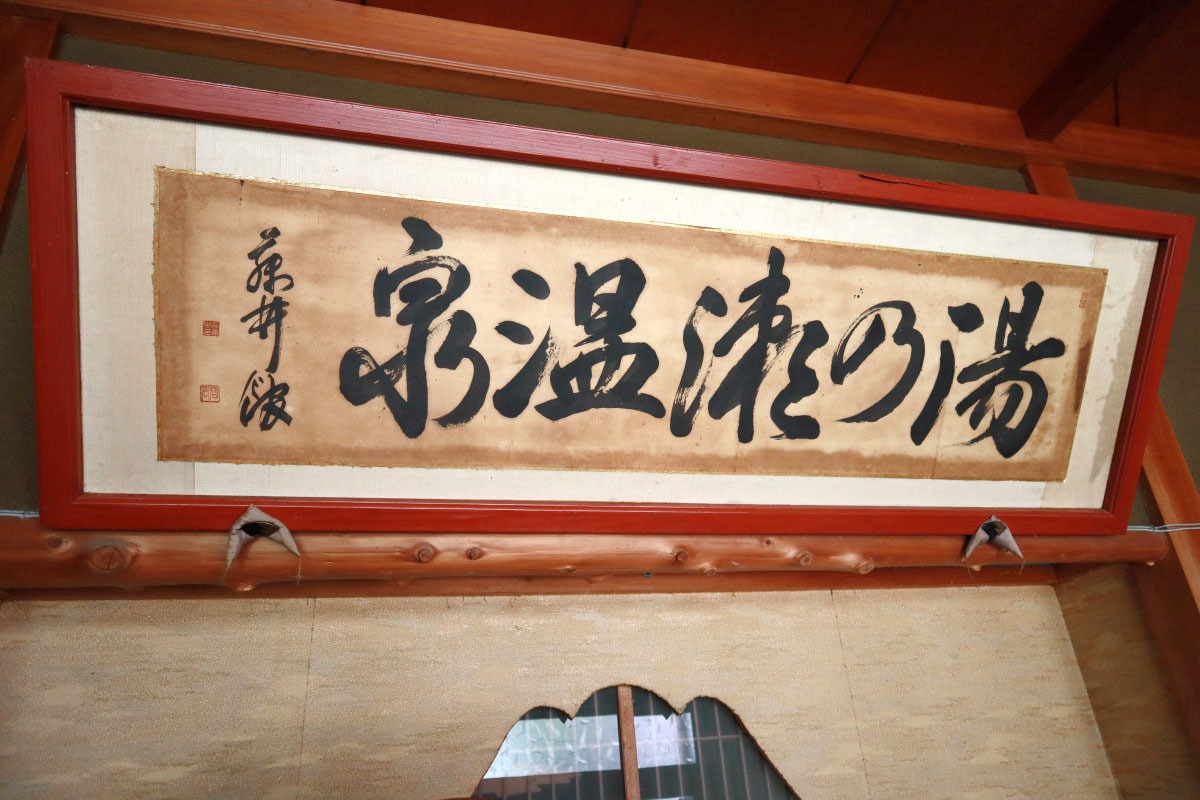 湯乃瀬温泉
藤井